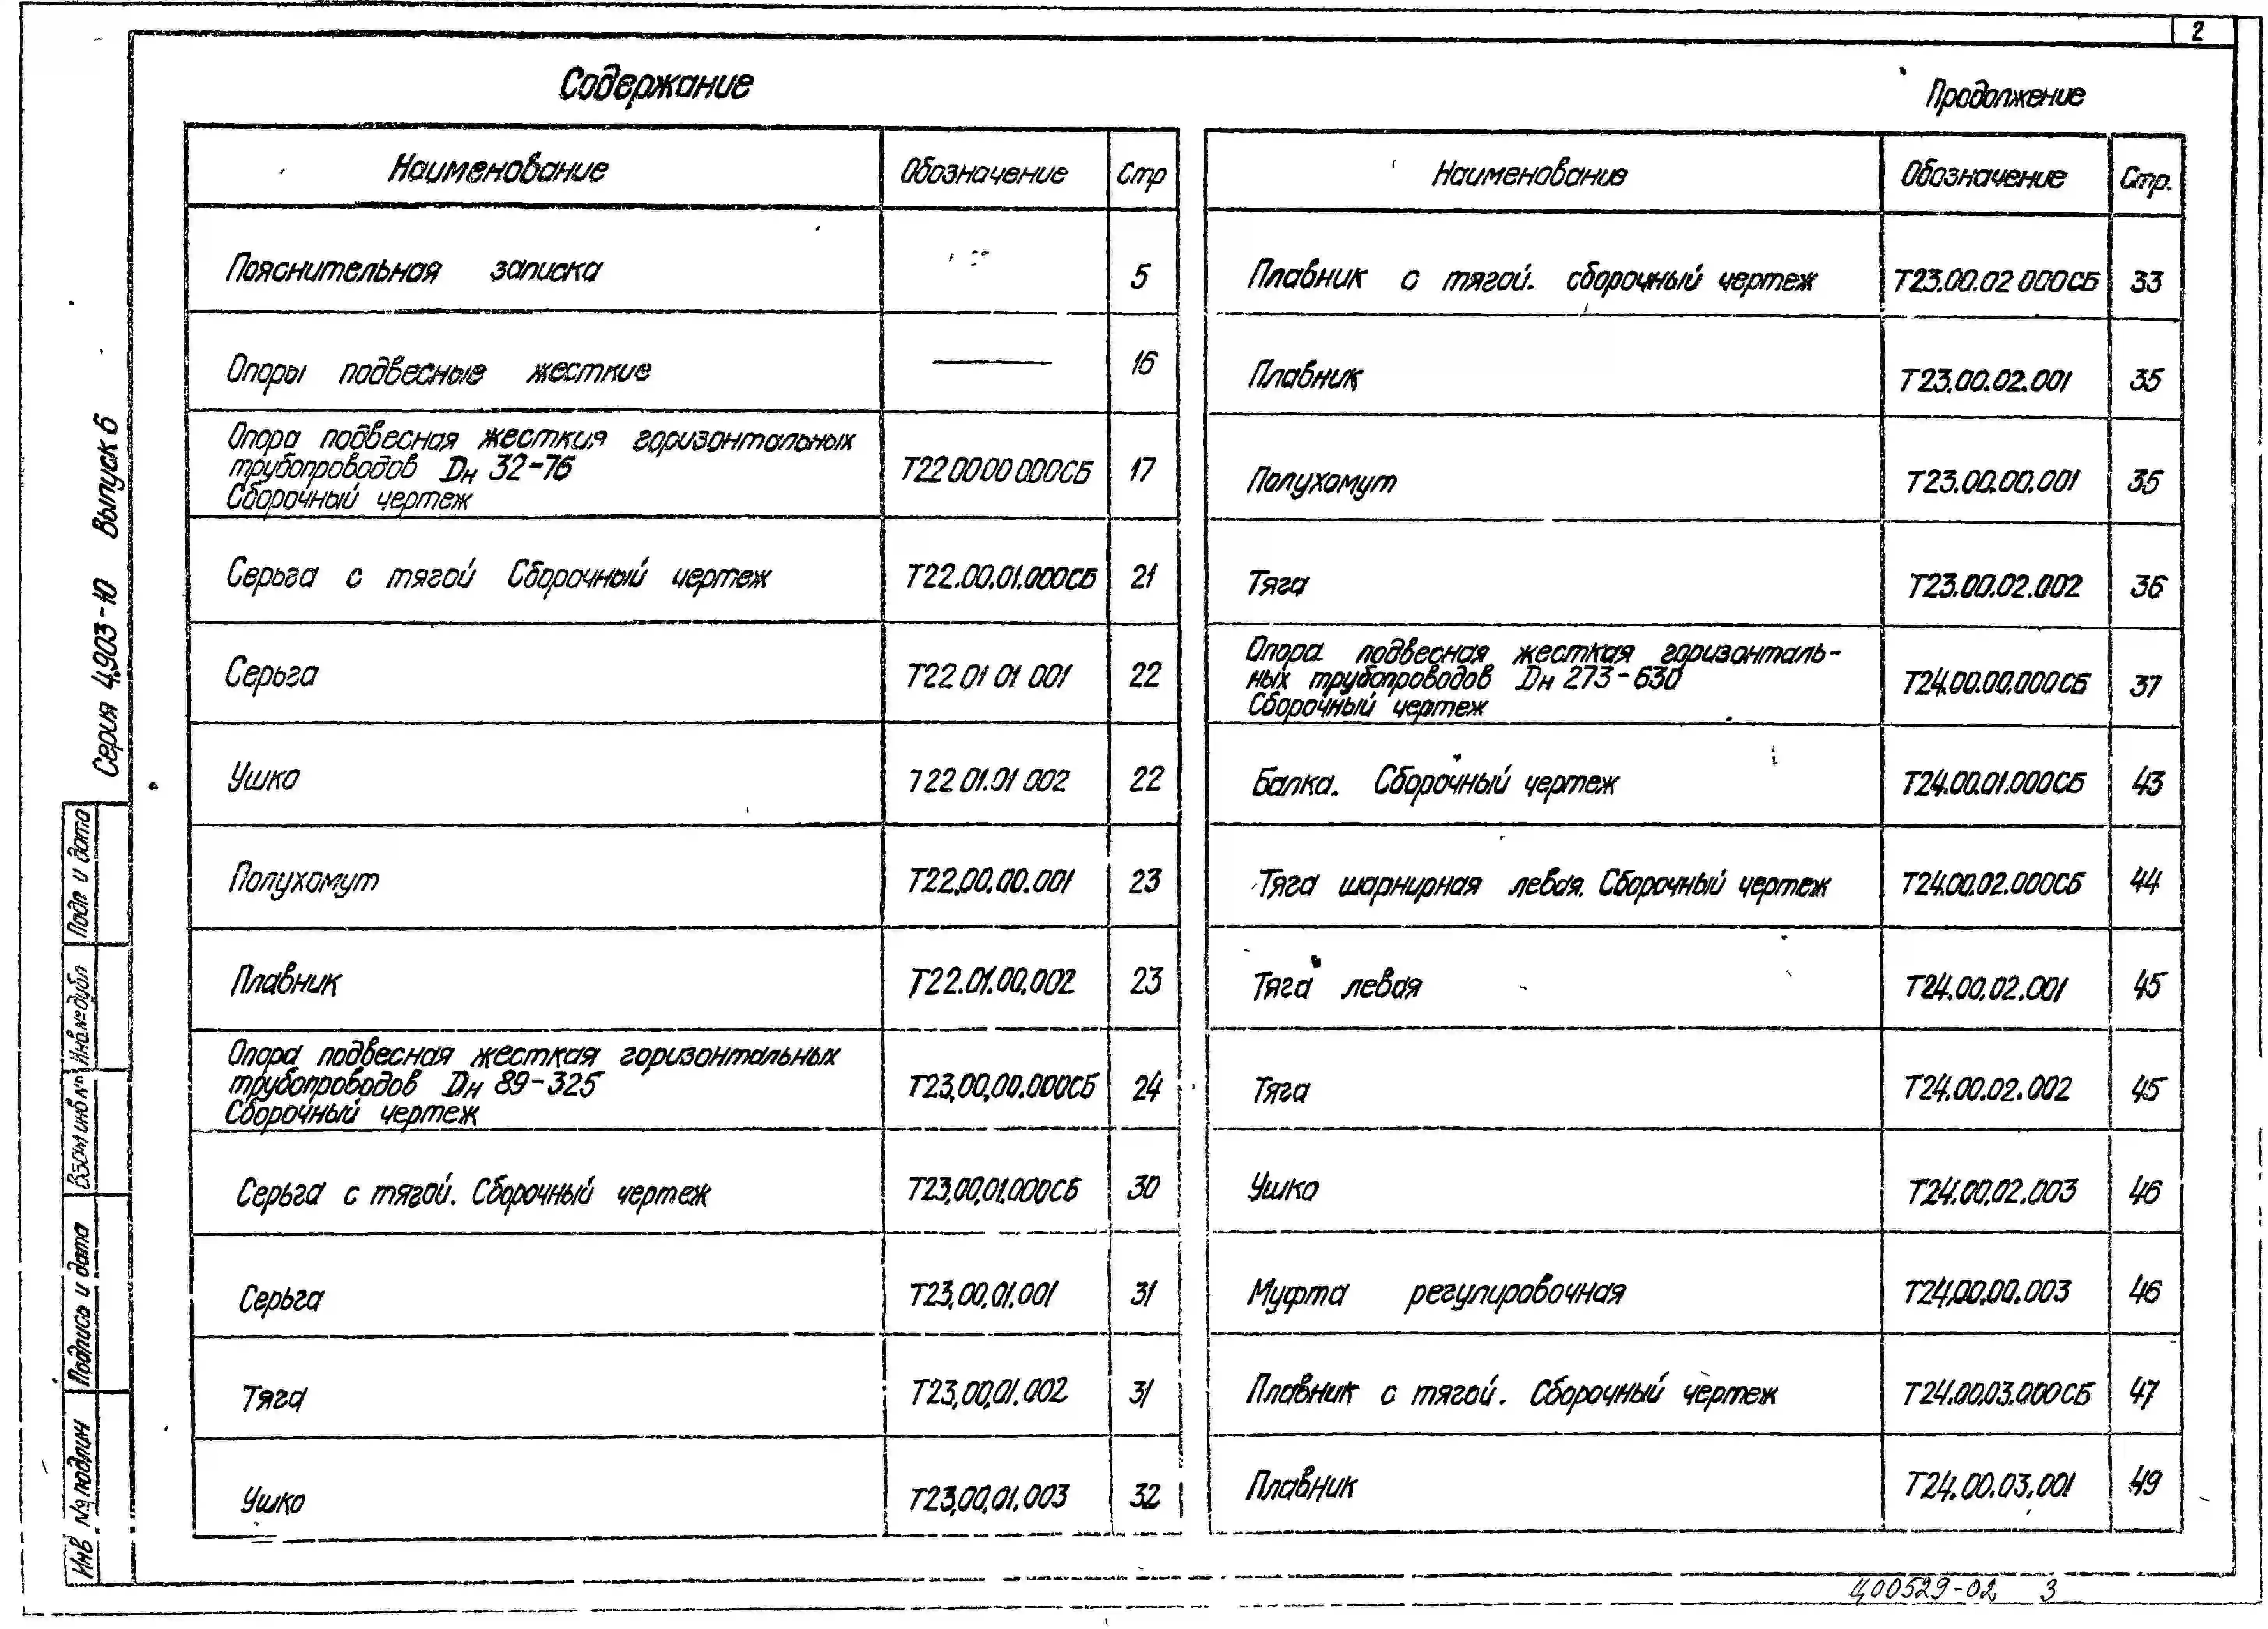 2
Содержание
Наименование Обозначение Стр
Пояснительная записка 5
Опоры подвесные жесткие ——— 16
Опора подвесная жесткия горизонтальных
трубопроводов Dн 32-76
Сборочный чертеж
Т22 00 00 000СБ 17
Серьга с тягой Сборочный чертеж Т22.00.01.000СБ 21
Серьга Т22 01 01 001 22
Ушко Т22 01.01 002 22
Полухомут Т22.00.00.001 23
Плавник Т22.01.00.002 23
Опора подвесная жесткая горизонтальных
трубопроводов Dн 89-325
Сборочный чертеж
Т23,00,00.000СБ 24
Серьга с тягой. Сборочный чертеж Т23,00,01.000СБ 30
Серьга Т23,00,01.001 31
Тяга Т23,00,01.002 31
Ушко Т23,00,01.003 32
Продолжение
Наименование Обозначение Стр.
Плавник с тягой. сборочный чертеж Т23.00.02 000СБ 33
Плавник Т23.00.02.001 35
Полухомут Т23.00.00.001 35
Тяга Т23.00.02.002 36
Опора подвесная жесткая горизонталь-
ных трубопроводов Dн 273-630
Сборочный чертеж
Т24.00.00.000СБ 37
Балка. Сборочный чертеж Т24.00.01.000СБ 43
Тяга шарнирная левая. Сборочный чертеж Т24.00.02.000СБ 44
Тяга левая Т24.00.02.001 45
Тяга Т24.00.02.002 45
Ушко Т24.00.02.003 46
Муфта регулировочная Т24.00.00.003 46
Плавник с тягой. Сборочный чертеж Т24.00.03.000СБ 47
Плавник Т24.00.03.001 49
Серия 4.903-10 Выпуск 6
Подп и дата
Инв.№ дубл
Взам инв №
Подпись и дата
Инв № подлин
Ц00529-02 3